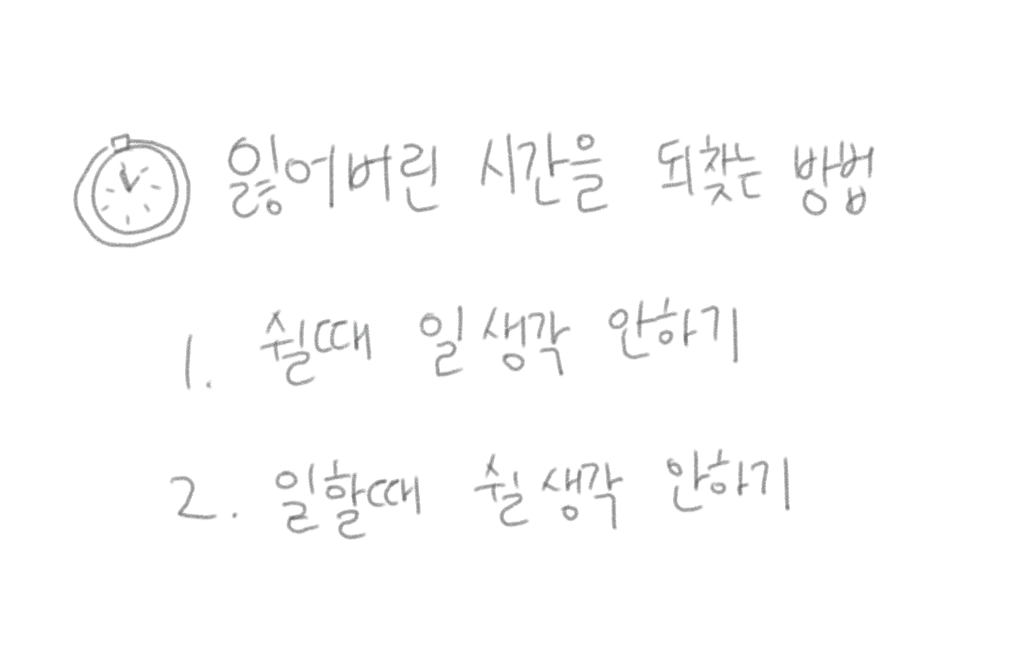 잃어버린 시간을 되찾는 방법
1. 쉴때 일생각 안하기
2. 일할때 쉴생각 안하기